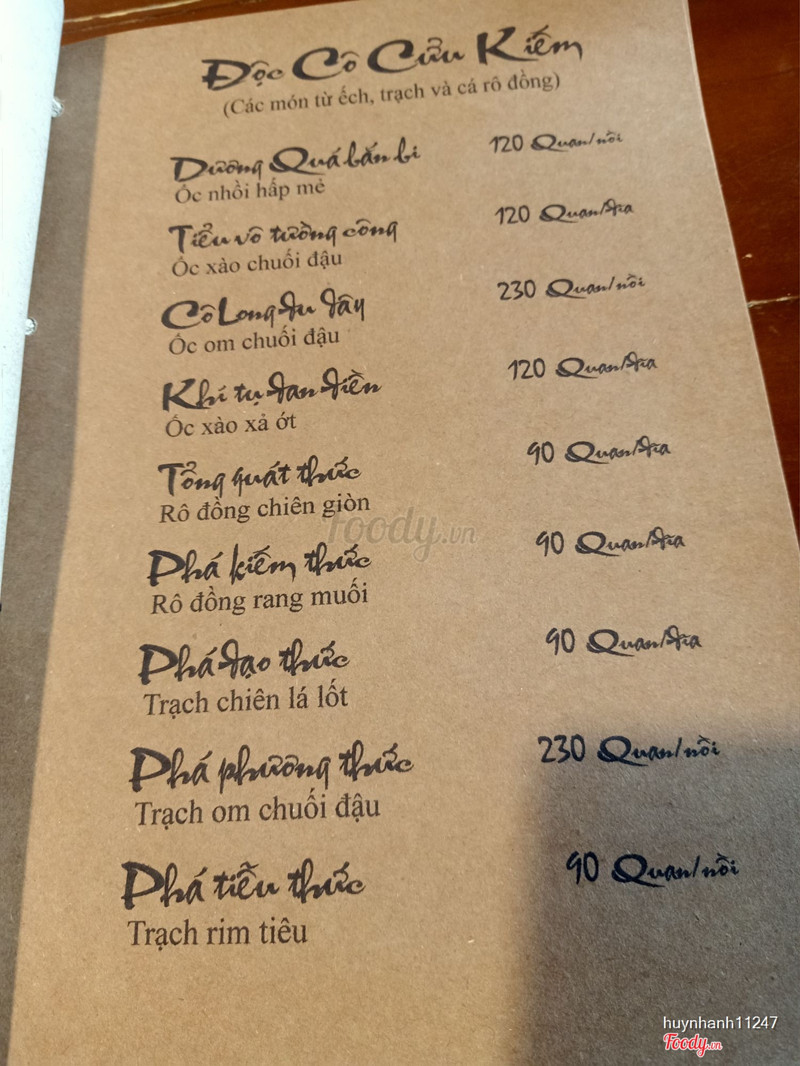 Độc Cô Cửu Kiếm
(Các món từ ếch, trạch và cá rô đồng)
Dương Quá bắn bi 120 Quan/nồi
Ốc nhồi hấp mẻ
Tiểu vô tường công 120 Quan/đĩa
Ốc xào chuối đậu
Cô Long đu dây 230 Quan/nồi
Ốc om chuối đậu
Khí tụ đan điền 120 Quan/đĩa
Ốc xào xả ớt
Tổng quát thức 90 Quan/đĩa
Rô đồng chiên giòn
Phá kiếm thức 90 Quan/đĩa
Rô đồng rang muối
Phá đạo thức 90 Quan/đĩa
Trạch chiên lá lốt
Phá phương thức 230 Quan/nồi
Trạch om chuối đậu
Phá tiễu thức 90 Quan/nồi
Trạch rim tiêu
foody.vn
huynhanh11247
Foody.vn